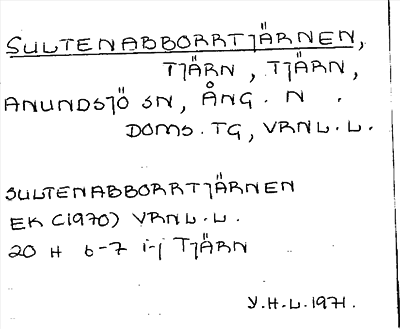 SULTENABBORRTJÄRNEN,
TJÄRN, TJÄRN,
ANUNDSJÖ SN, ÅNG. N .
DOMS. TG, VRNL.L.
SULTENABBORRTJÄRNEN
EK (1970) VRNL.L.
20 H 6-7 i-j TJÄRN
Y.H-L.1971.